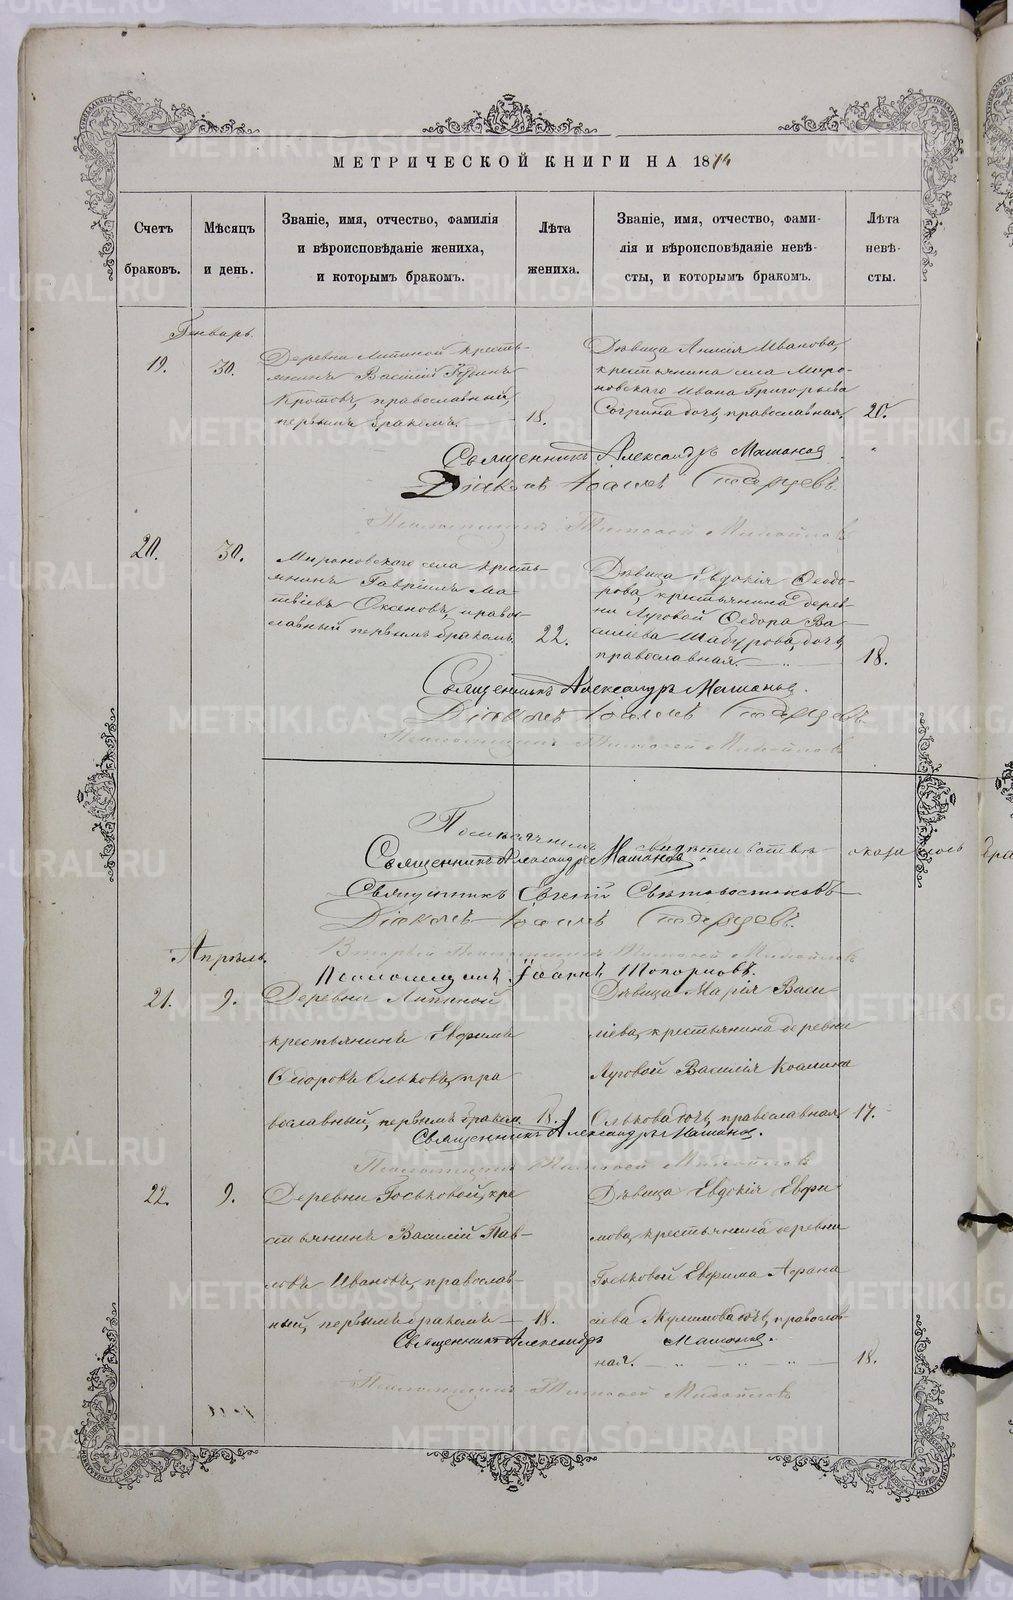 МЕТРИЧЕСКОЙ КНИГИ НА 1874
Счетъ браковъ.
Мѣсяцъ и день.
Званіе, имя, отчество, фамилія
и вѣроисповѣданіе жениха,
и которымъ бракомъ.
Лѣта жениха.
Званіе, имя, отчество, фами-
лія и вѣроисповѣданіе невѣ-
сты, и которымъ бракомъ.
Лѣта невѣ-
сты.
Генварь.
19.
30.
Деревни Липиной кресть-
янинъ Василій
Кротовъ, православный,
первымъ бракомъ.
18.
Дѣвица Анисія Иванова,
крестьянина села Миро-
новскаго Ивана Григорьева
дочь, православная.
20.
Священникъ Александръ
Діаконъ Іоаннъ Старцевъ.
Псаломщикъ Тимофей Михайловъ
20.
30.
Мироновскаго села кресть-
янинъ Гавріилъ Ма-
твіевъ Оксеновъ, право-
славный первымъ бракомъ.
22.
Дѣвица Евдокія Феодо-
рова, крестьянина дерев-
ни Луговой Федора Ва-
силіева Шабурова дочь,
православная.
18.
Священникъ Александръ
Діаконъ Іоаннъ Старцевъ
Псаломщикъ Тимофей Михайловъ
По мѣсячномъ свидѣтельствѣ оказалось бра
Священникъ Александръ
Священникъ Евгеній
Діаконъ Іоаннъ Старцевъ.
Псаломщикъ Тимофей Михайловъ
Псаломщикъ Іоаннъ Топорковъ.
Апрѣль.
21.
9.
Деревни Липиной
крестьянинъ Евфимъ
Ѳедоровъ Ольковъ, пра
вославный, первымъ браком.
18.
Дѣвица Марія Васи
ліева, крестьянина деревни
Луговой Василія
Олькова дочь, православная
17.
Священникъ Александръ
Псаломщикъ Тимофей Михайловъ
22.
9.
Деревни Госьковой, кре
стьянинъ Василій Пав-
ловъ Ивановъ, православ-
ный, первымъ бракомъ
18.
Дѣвица Евдокія Евфи
мова, крестьянина деревни
Госьковой Евфима Афана
сіева дочь, православ
ная.
18.
Священникъ Александръ
Псаломщикъ Тимофей Михайловъ
METRIKI.GASO-URAL.RU